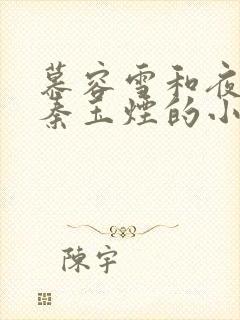 慕容雪和夜
秦玉煙的小
陳宇